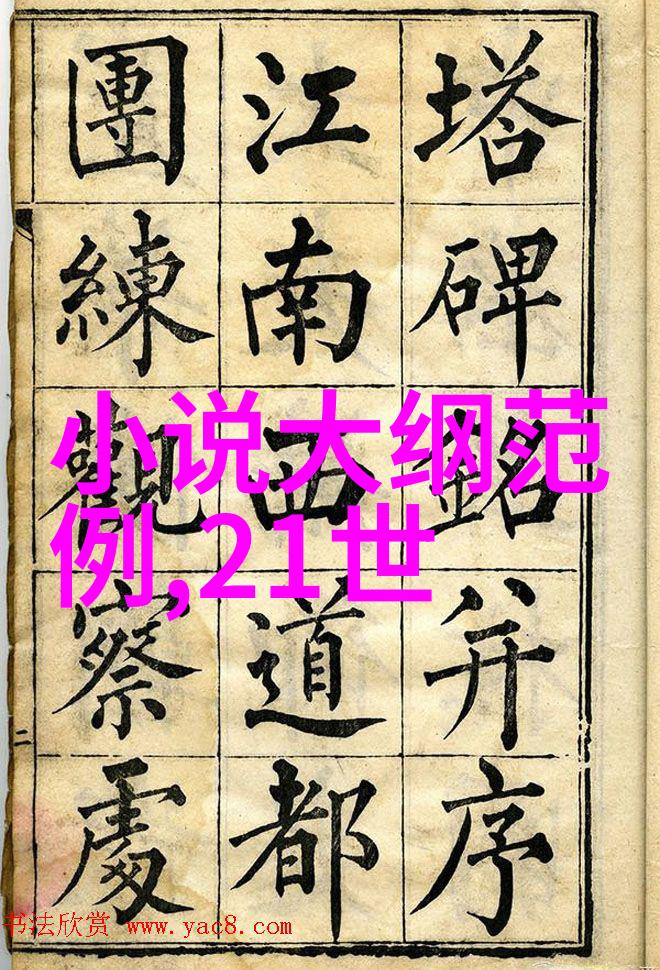 塔碑銘并序
江南西道都
團練觀察處
小说大纲范
例,21世
二
书法欣赏 www.yac8.com